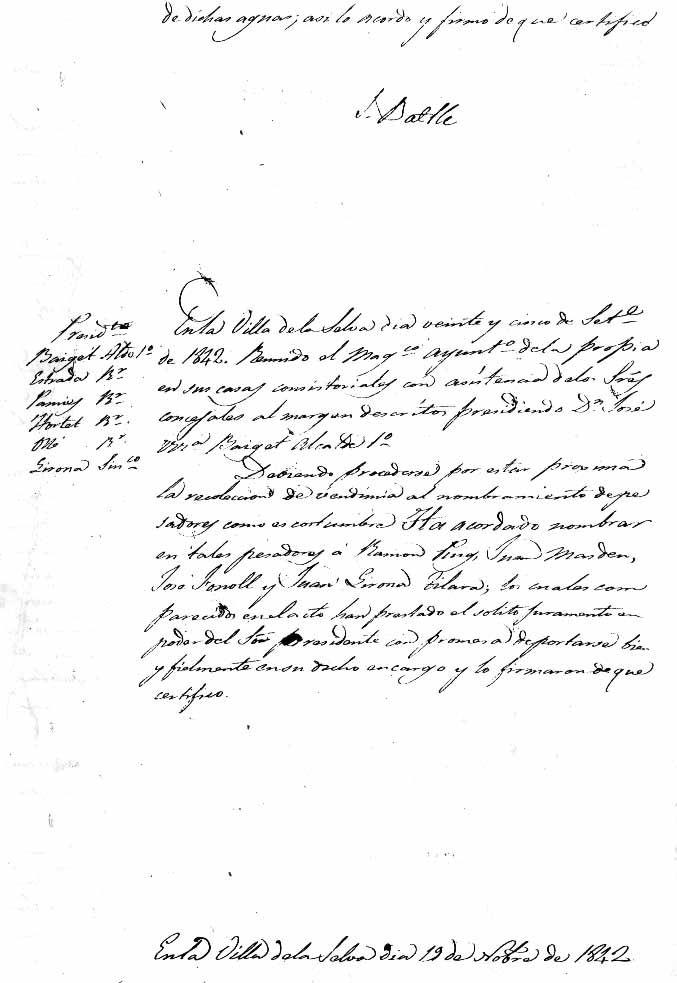 de dichas aguas; asi lo acordo y firmo de que certifico
J. Batlle
Presidte
Baiget Alde 1º
Estrada Rr
Pamies Rr
Hortet Rr
Ollé Rr
Girona Sinco
En la Villa de la Selva dia veinte y cinco de Sete
de 1842. Reunido el Magco ayunto de la propia
en sus casas consistoriales con asistencia delos Sres
concejales al margen descritos presidiendo Dn José
Baiget Alcalde 1º
Debiendo procederse por estar proxima
la recoleccion de vendimia al nombramiento de pe
sadores como es costumbre Ha acordado nombrar
en tales pesadores á Ramon Puig, Juan Masdeu,
José Fonoll y Juan Girona Filara; los cuales com
parecidos en el acto han prestado el solito juramento en
poder del Sor presidente con promesa de portarse bien
y fielmente en su dicho encargo y lo firmaron de que
certifico.
En la Villa de la Selva dia 19 de Nobre de 1842